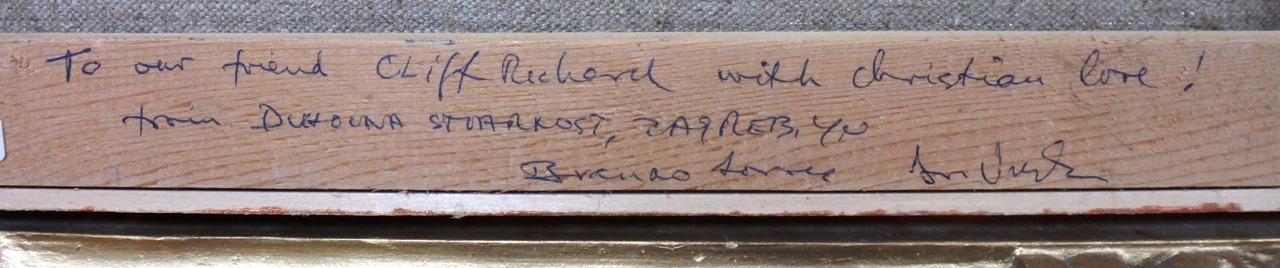 To our friend Cliff Richard with christian love!
from DUHOVNA STVARNOST, ZAGREB, YU